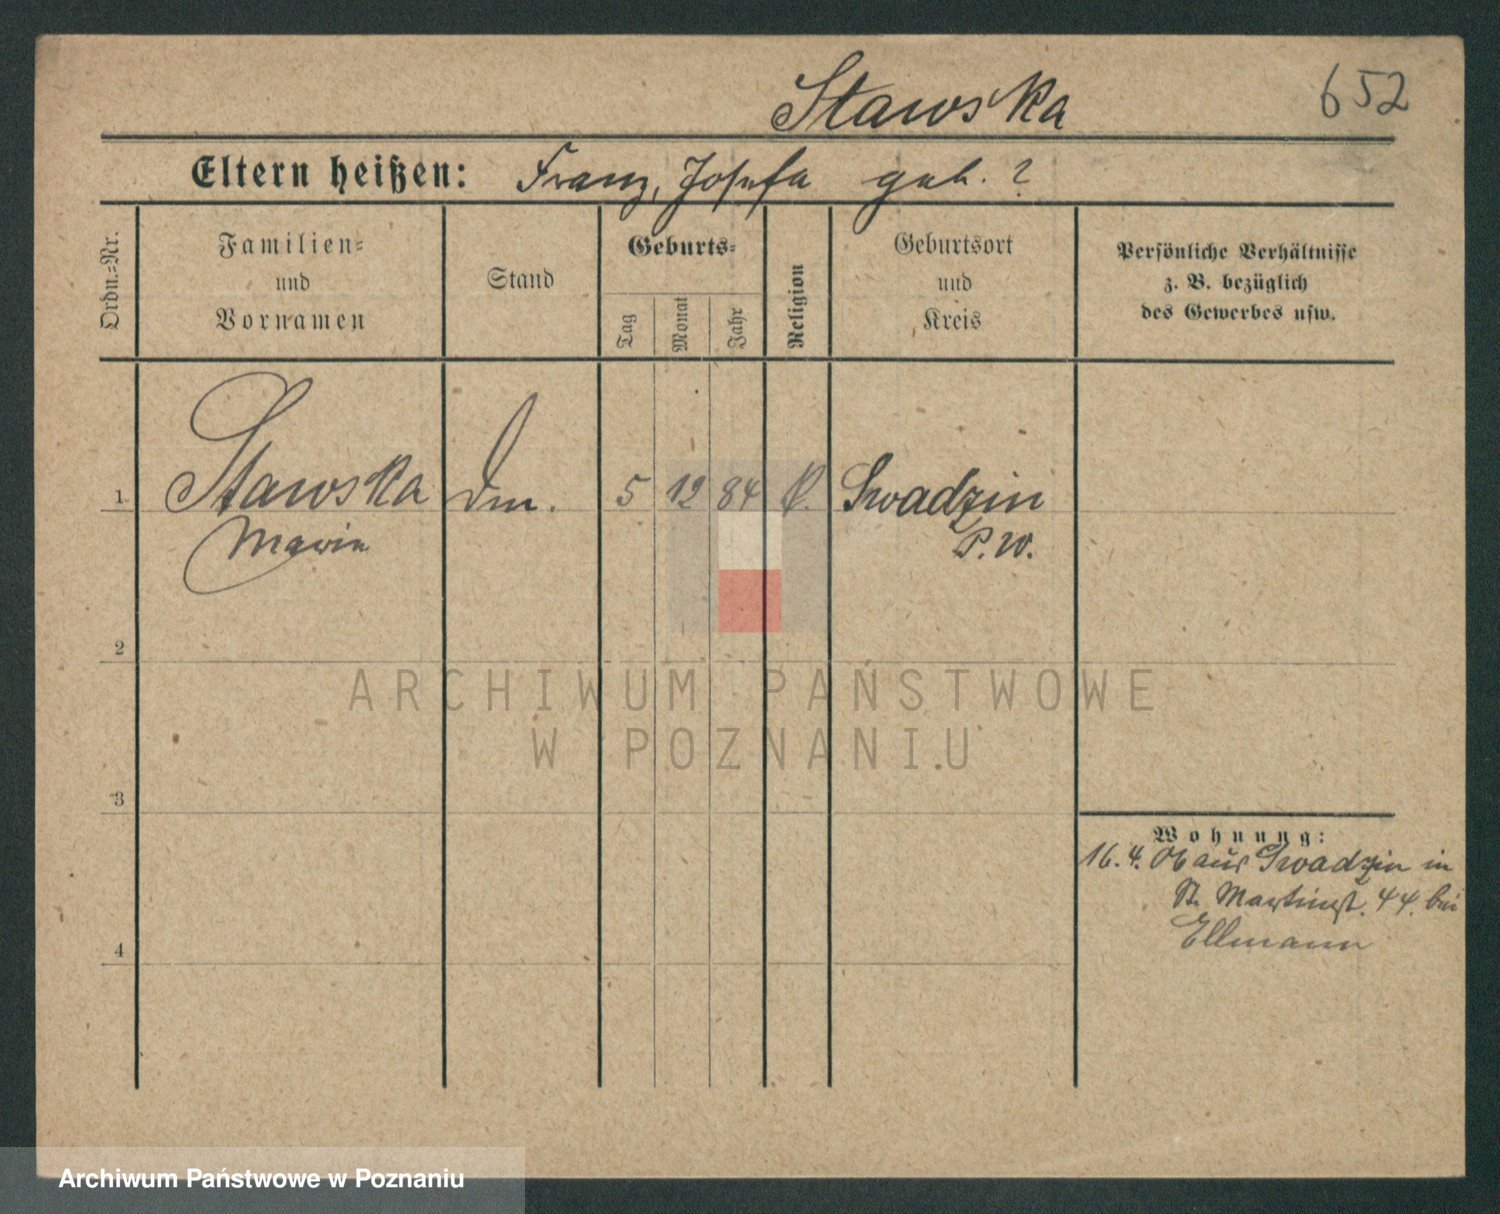 Stawska
652
Eltern heißen: Franz, Josefa geb. ?
Ordn.=Nr.
Familien=
und
Vornamen
Stand
Geburts=
Tag
Monat
Jahr
Religion
Geburtsort
und
Kreis
Persönliche Verhältnisse
z. B. bezüglich
des Gewerbes usw.
1 Stawska Dm. 5 12 84 K. Swadzin
Marie P. W.
2
3
4
Wohnung:
16. 4. 06 aus Swadzin in
St. Martinst. 44. bei
Ellmann
ARCHIWUM PAŃSTWOWE
W POZNANIU
Archiwum Państwowe w Poznaniu